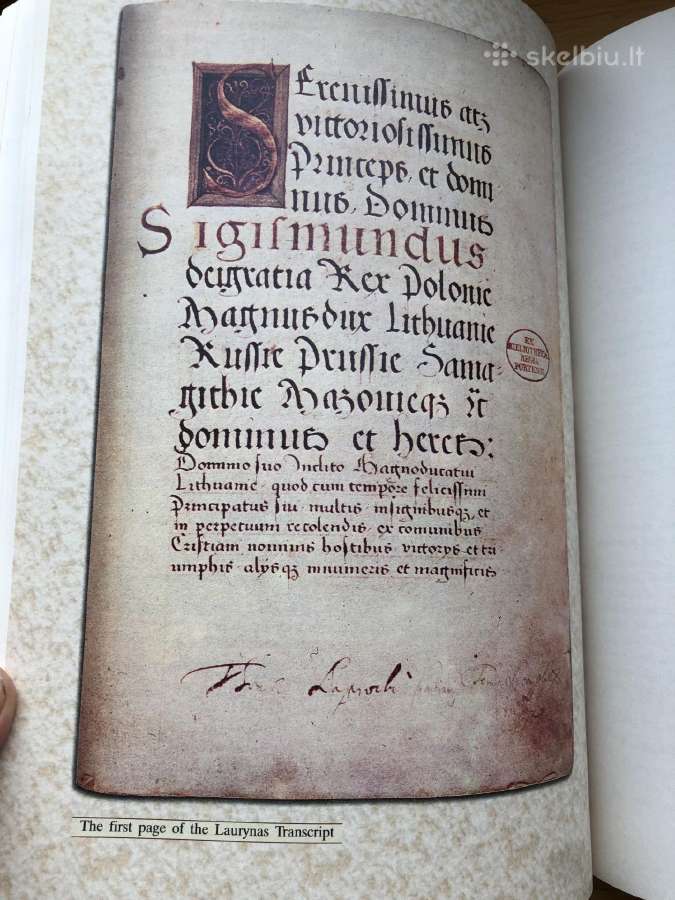 skelbiu.lt
SErenissimus atq3
victoriosissimus
Princeps, et domi
nus, Dominus
Sigismundus
deigratia Rex Polonie
Magnus dux Lithuanie
Russie Prussie Sama
githie Mazonieq3
dominus et heres:
Domino suo Inclito Magnoducatui
Lithuanie quod cum tempore felicissimi
Principatus sui multis insignibusq3, et
in perpetuum recolendis ex comunibus
Cristiani nominis hostibus victorys et tri
umphis alysq3 innumeris et magnificis
EX
BIBLIOTHECA
The first page of the Laurynas Transcript